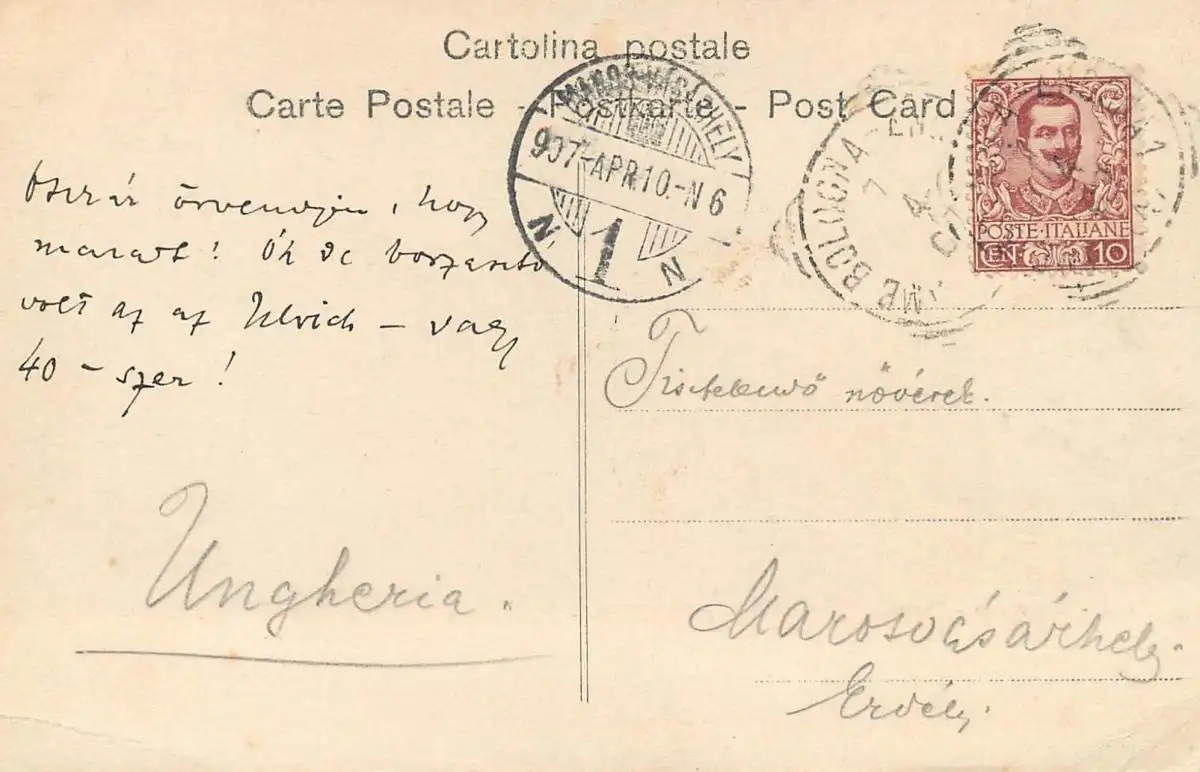 Cartolina postale
Carte Postale - Postkarte - Post Card
MAROS-VÁSÁRHELY
907-APR10.-N6
N 1 N
BOLOGNA
POSTE·ITALIANE
CEN· 10
örvendjen, hogy
maradt! Óh de borzasztó
volt az az Ulrich - vagy
40 - szer!
Tisztelendő nővérek.
Ungheria.
Marosvásárhely.
Erdély.